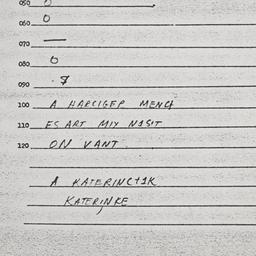 050 0
060 0
070 —
080 0
090 . 7
100 A HARCIGEP MENCH
110 ES ART MIY N1SIT
120 ON VANT
A KATERINCT1K
KATERINKE